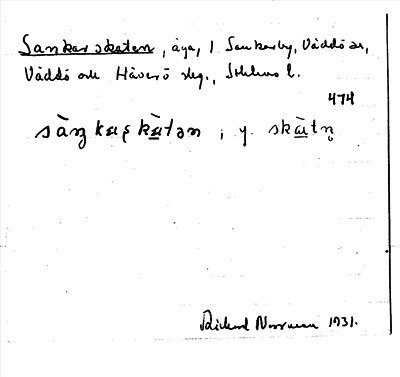 Sankarskaten, äga, 1 Sankarby, Väddö sn,
Väddö och Häverö skg., Sthlms l.
474
sàŋkaʂkàtən ; y. skàtn̥
Rickard Norrman 1931.